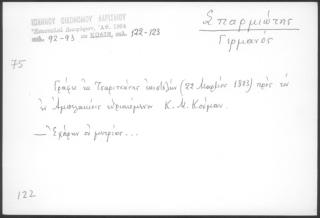 ΙΩΑΝΝΟΥ ΟΙΚΟΝΟΜΟΥ ΛΑΡΙΣΑΙΟΥ
Ἐπιστολαὶ Διαφόρων, Ἀθ. 1964
σελ. 92-93 κώδιξ, σελ. 122-123
Σπαρμιώτης
Γερμανός
75
Γράφει ἐκ Τσαριτσάνης ἐπιστολὴν (22 Μαρτίου 1813) πρὸς τὸν
ἐν Ἀμπελακίοις εὑρισκόμενον Κ. Μ. Κούμαν.
— Ἐχάρην οὐ μετρίως...
122